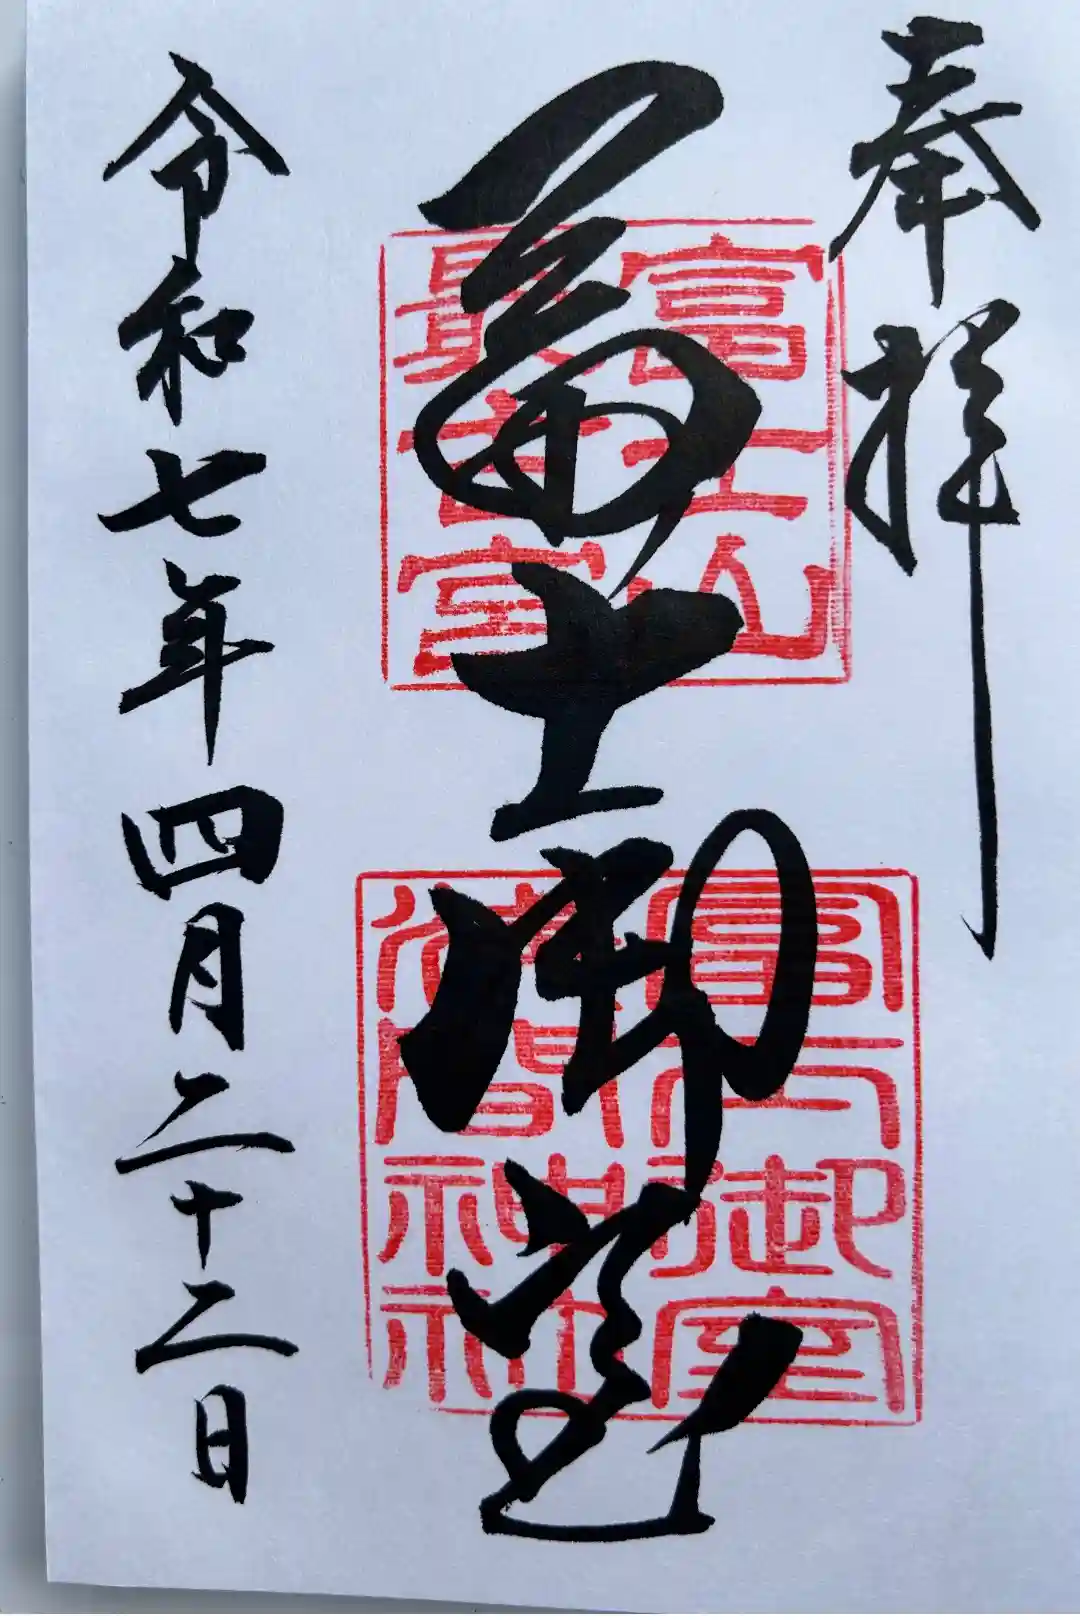 奉拝
富士山
最古宮
冨士御室
冨士御室
淺間神社
令和七年四月二十二日